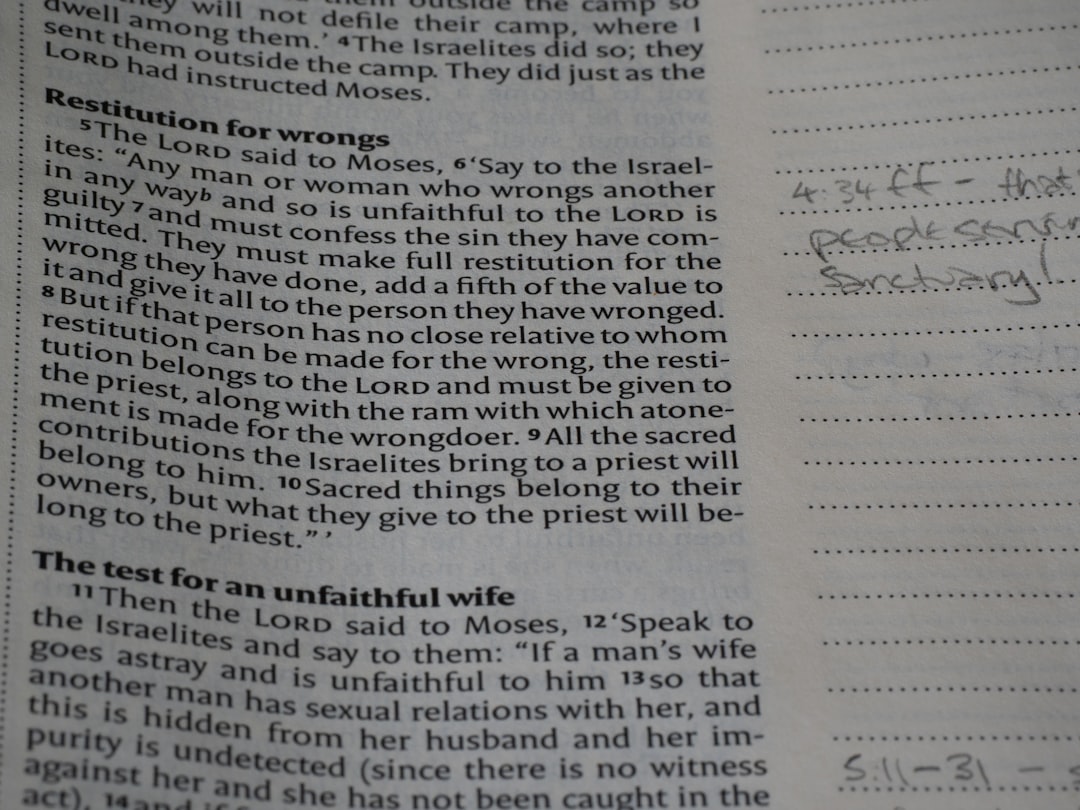 them outside the camp so
they will not defile their camp, where I
dwell among them.’ 4 The Israelites did so; they
sent them outside the camp. They did just as the
LORD had instructed Moses.
Restitution for wrongs
5 The LORD said to Moses, 6 ‘Say to the Israel-
ites: “Any man or woman who wrongs another
in any way b and so is unfaithful to the LORD is
guilty 7 and must confess the sin they have com-
mitted. They must make full restitution for the
wrong they have done, add a fifth of the value to
it and give it all to the person they have wronged.
8 But if that person has no close relative to whom
restitution can be made for the wrong, the resti-
tution belongs to the LORD and must be given to
the priest, along with the ram with which atone-
ment is made for the wrongdoer. 9 All the sacred
contributions the Israelites bring to a priest will
belong to him. 10 Sacred things belong to their
owners, but what they give to the priest will be-
long to the priest.” ’
The test for an unfaithful wife
11 Then the LORD said to Moses, 12 ‘Speak to
the Israelites and say to them: “If a man’s wife
goes astray and is unfaithful to him 13 so that
another man has sexual relations with her, and
this is hidden from her husband and her im-
purity is undetected (since there is no witness
against her and she has not been caught in the
act), 14 and if
4:34 ff – that
people
sanctuary!
5:11–31 –